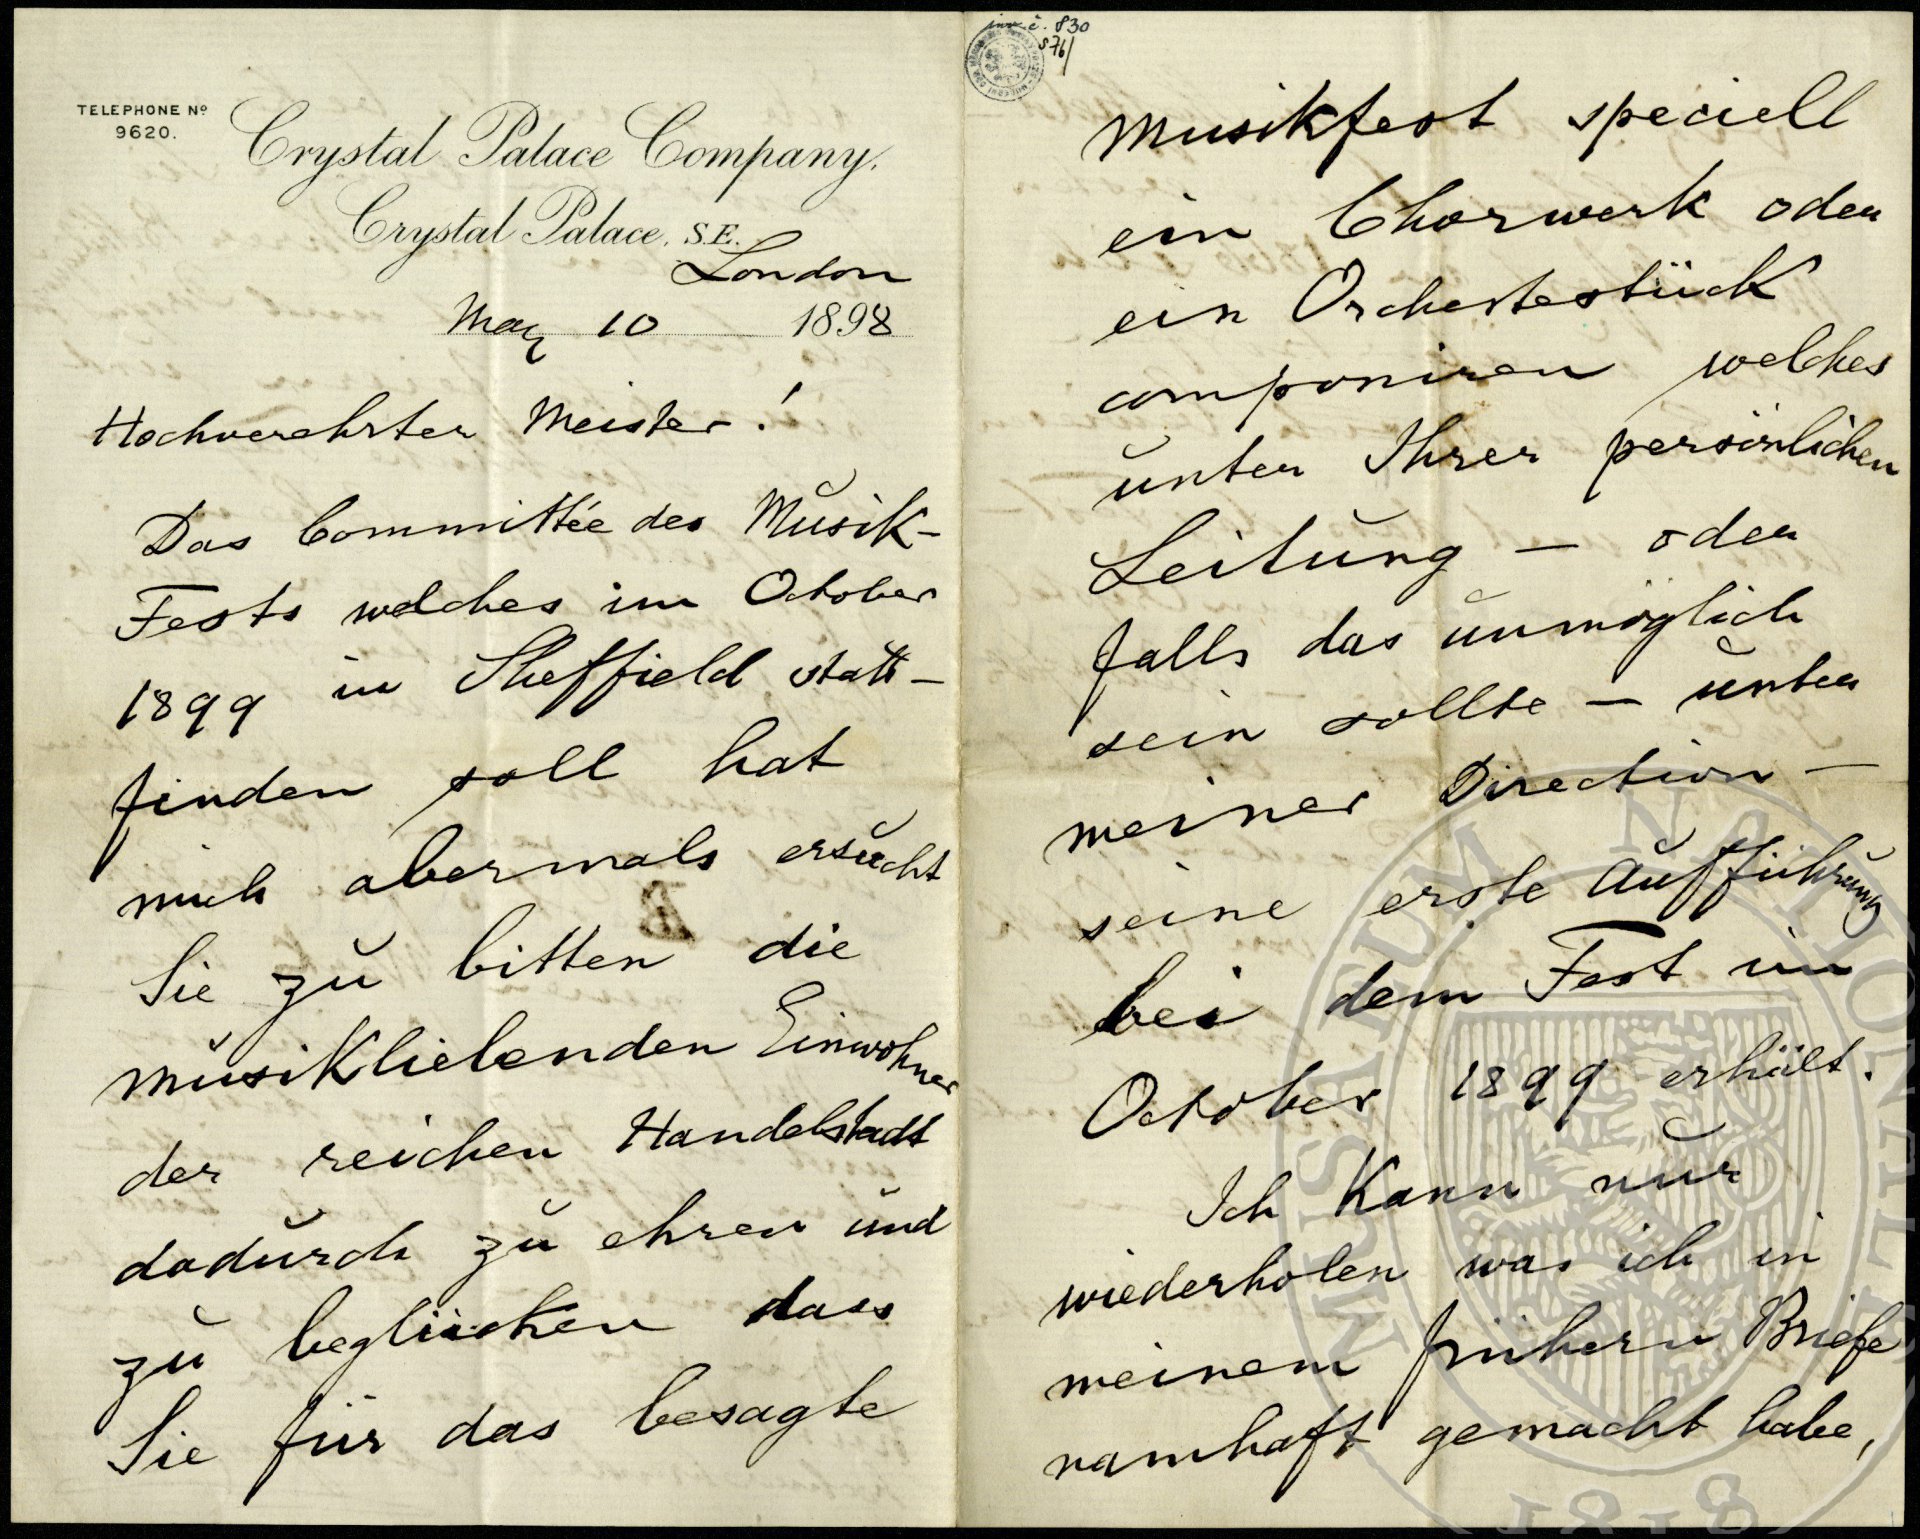 TELEPHONE Nº
9620.
Crystal Palace Company,
Crystal Palace, S.E.
London
May 10 1898
Hochverehrter Meister!
Das Committée des Musik-
Fests welches im October
1899 in Sheffield statt-
finden soll hat
mich abermals ersucht
Sie zu bitten die
musikliebenden Einwohner
der reichen Handelstadt
dadurch zu ehren und
zu beglücken dass
Sie für das besagte
inv. č. 830
876/
Musikfest speciell
ein Chorwerk oder
ein Orchesterstück
componiren welches
unter Ihrer persönlichen
Leitung — oder
falls das unmöglich
sein sollte — unter
meiner Direction —
seine erste Aufführung
bei dem Fest im
October 1899 erhält.
Ich kann nur
wiederholen was ich in
meinem frühern Briefe
namhaft gemacht habe,
MUSEUM NATIONALE
1818